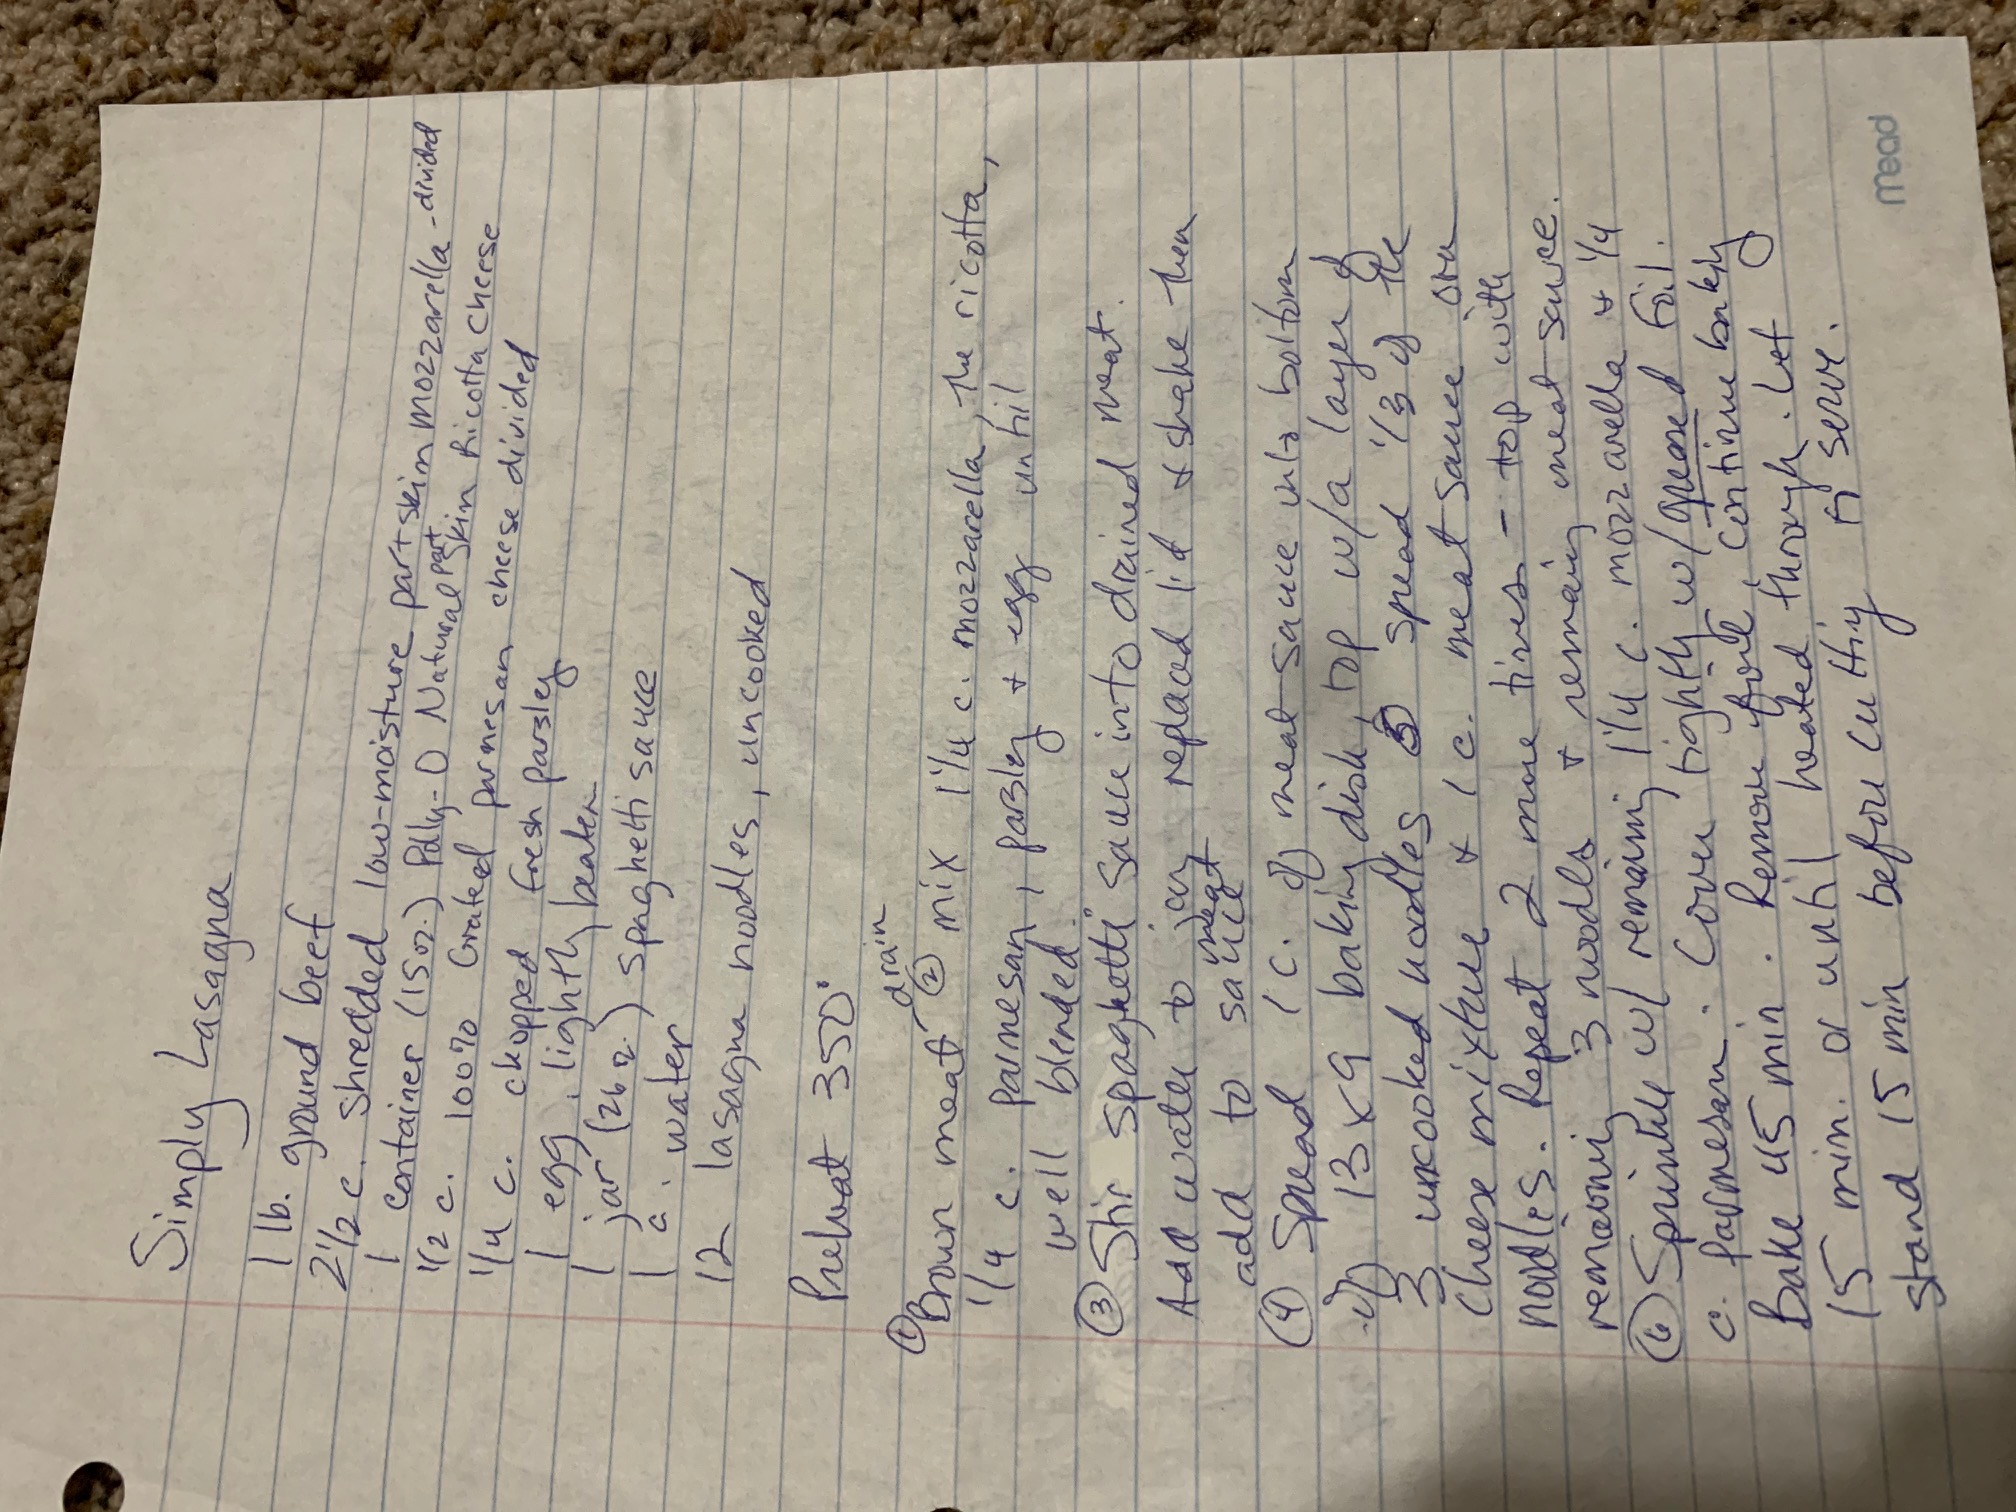 Simply Lasagna
1 lb. ground beef
2 1/2 c. shredded low-moisture part skim mozzarella - divided
1 container (15 oz.) Polly-O Natural part skin Ricotta Cheese
1/2 c. 100% Grated parmesan cheese divided
1/4 c. chopped fresh parsley
1 egg, lightly beaten
1 jar (26 oz.) spaghetti sauce
1 c. water
12 lasagna noodles, uncooked
Preheat 350°
① Brown meat - drain ② mix 1 1/4 c. mozzarella, the ricotta,
1/4 c. parmesan, parsley & egg until
well blended.
③ Stir spaghetti sauce into drained meat.
Add water to jar, replaced lid & shake then
add to meat sauce
④ Spread 1 c. of meat sauce onto bottom
of 13x9 baking dish, top w/a layer of
3 uncooked noodles ⑤ spread 1/3 of the
cheese mixture & 1 c. meat sauce over
noodles. Repeat 2 more times - top with
remaining 3 noodles & remaining meat sauce.
⑥ Sprinkle w/ remaining 1 1/4 c. mozzarella & 1/4
c. parmesan. Cover tightly w/greased foil.
Bake 45 min. Remove foil, continue baking
15 min. or until heated through. Let
stand 15 min before cutting to serve.
mead